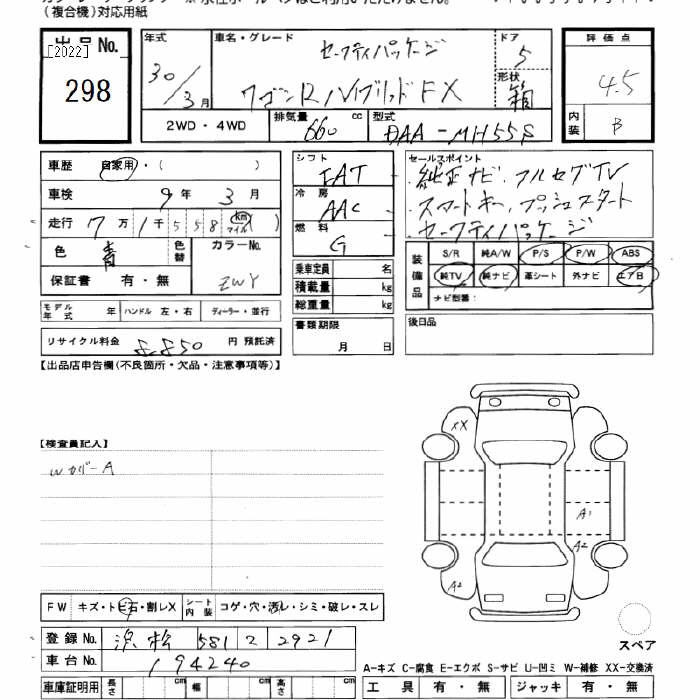 (複合機)対応用紙
出品No.
[2022]
298
年式
30/3月
車名・グレード
セーフティパッケージ
ワゴンRハイブリッドFX
ドア
5
形状
箱
評価点
4.5
内装
B
2WD・4WD
排気量 660 cc
型式 DAA-MH55S
車歴 自家用・( )
車検 9年 3月
走行 7万1千558 km マイル ( )
色 青
色替
カラーNo.
ZWY
保証書 有・無
モデル年式 年 ハンドル 左・右 ディーラー・並行
リサイクル料金 8,850 円 預託済
シフト
IAT
冷房
AAC
燃料
G
乗車定員 名
積載量 kg
総重量 kg
書類期限
月 日
セールスポイント
純正ナビ、フルセグTV
スマートキー、プッシュスタート
セーフティパッケージ
装備品
S/R 純A/W P/S P/W ABS
純TV 純ナビ 革シート 外ナビ エアB
ナビ型番:
後日品
【出品店申告欄(不良箇所・欠品・注意事項等)】
【検査員記入】
WカバーA
XX
A1
A2
A2
スペア
FW キズ・トビ石・割レX シート内装 コゲ・穴・汚レ・シミ・破レ・スレ
登録No. 浜松 581 2921
車台No. 194240
車庫証明用 長さ cm 幅 cm 高さ cm
A-キズ C-腐食 E-エクボ S-サビ U-凹ミ W-補修 XX-交換済
工具 有・無 ジャッキ 有・無